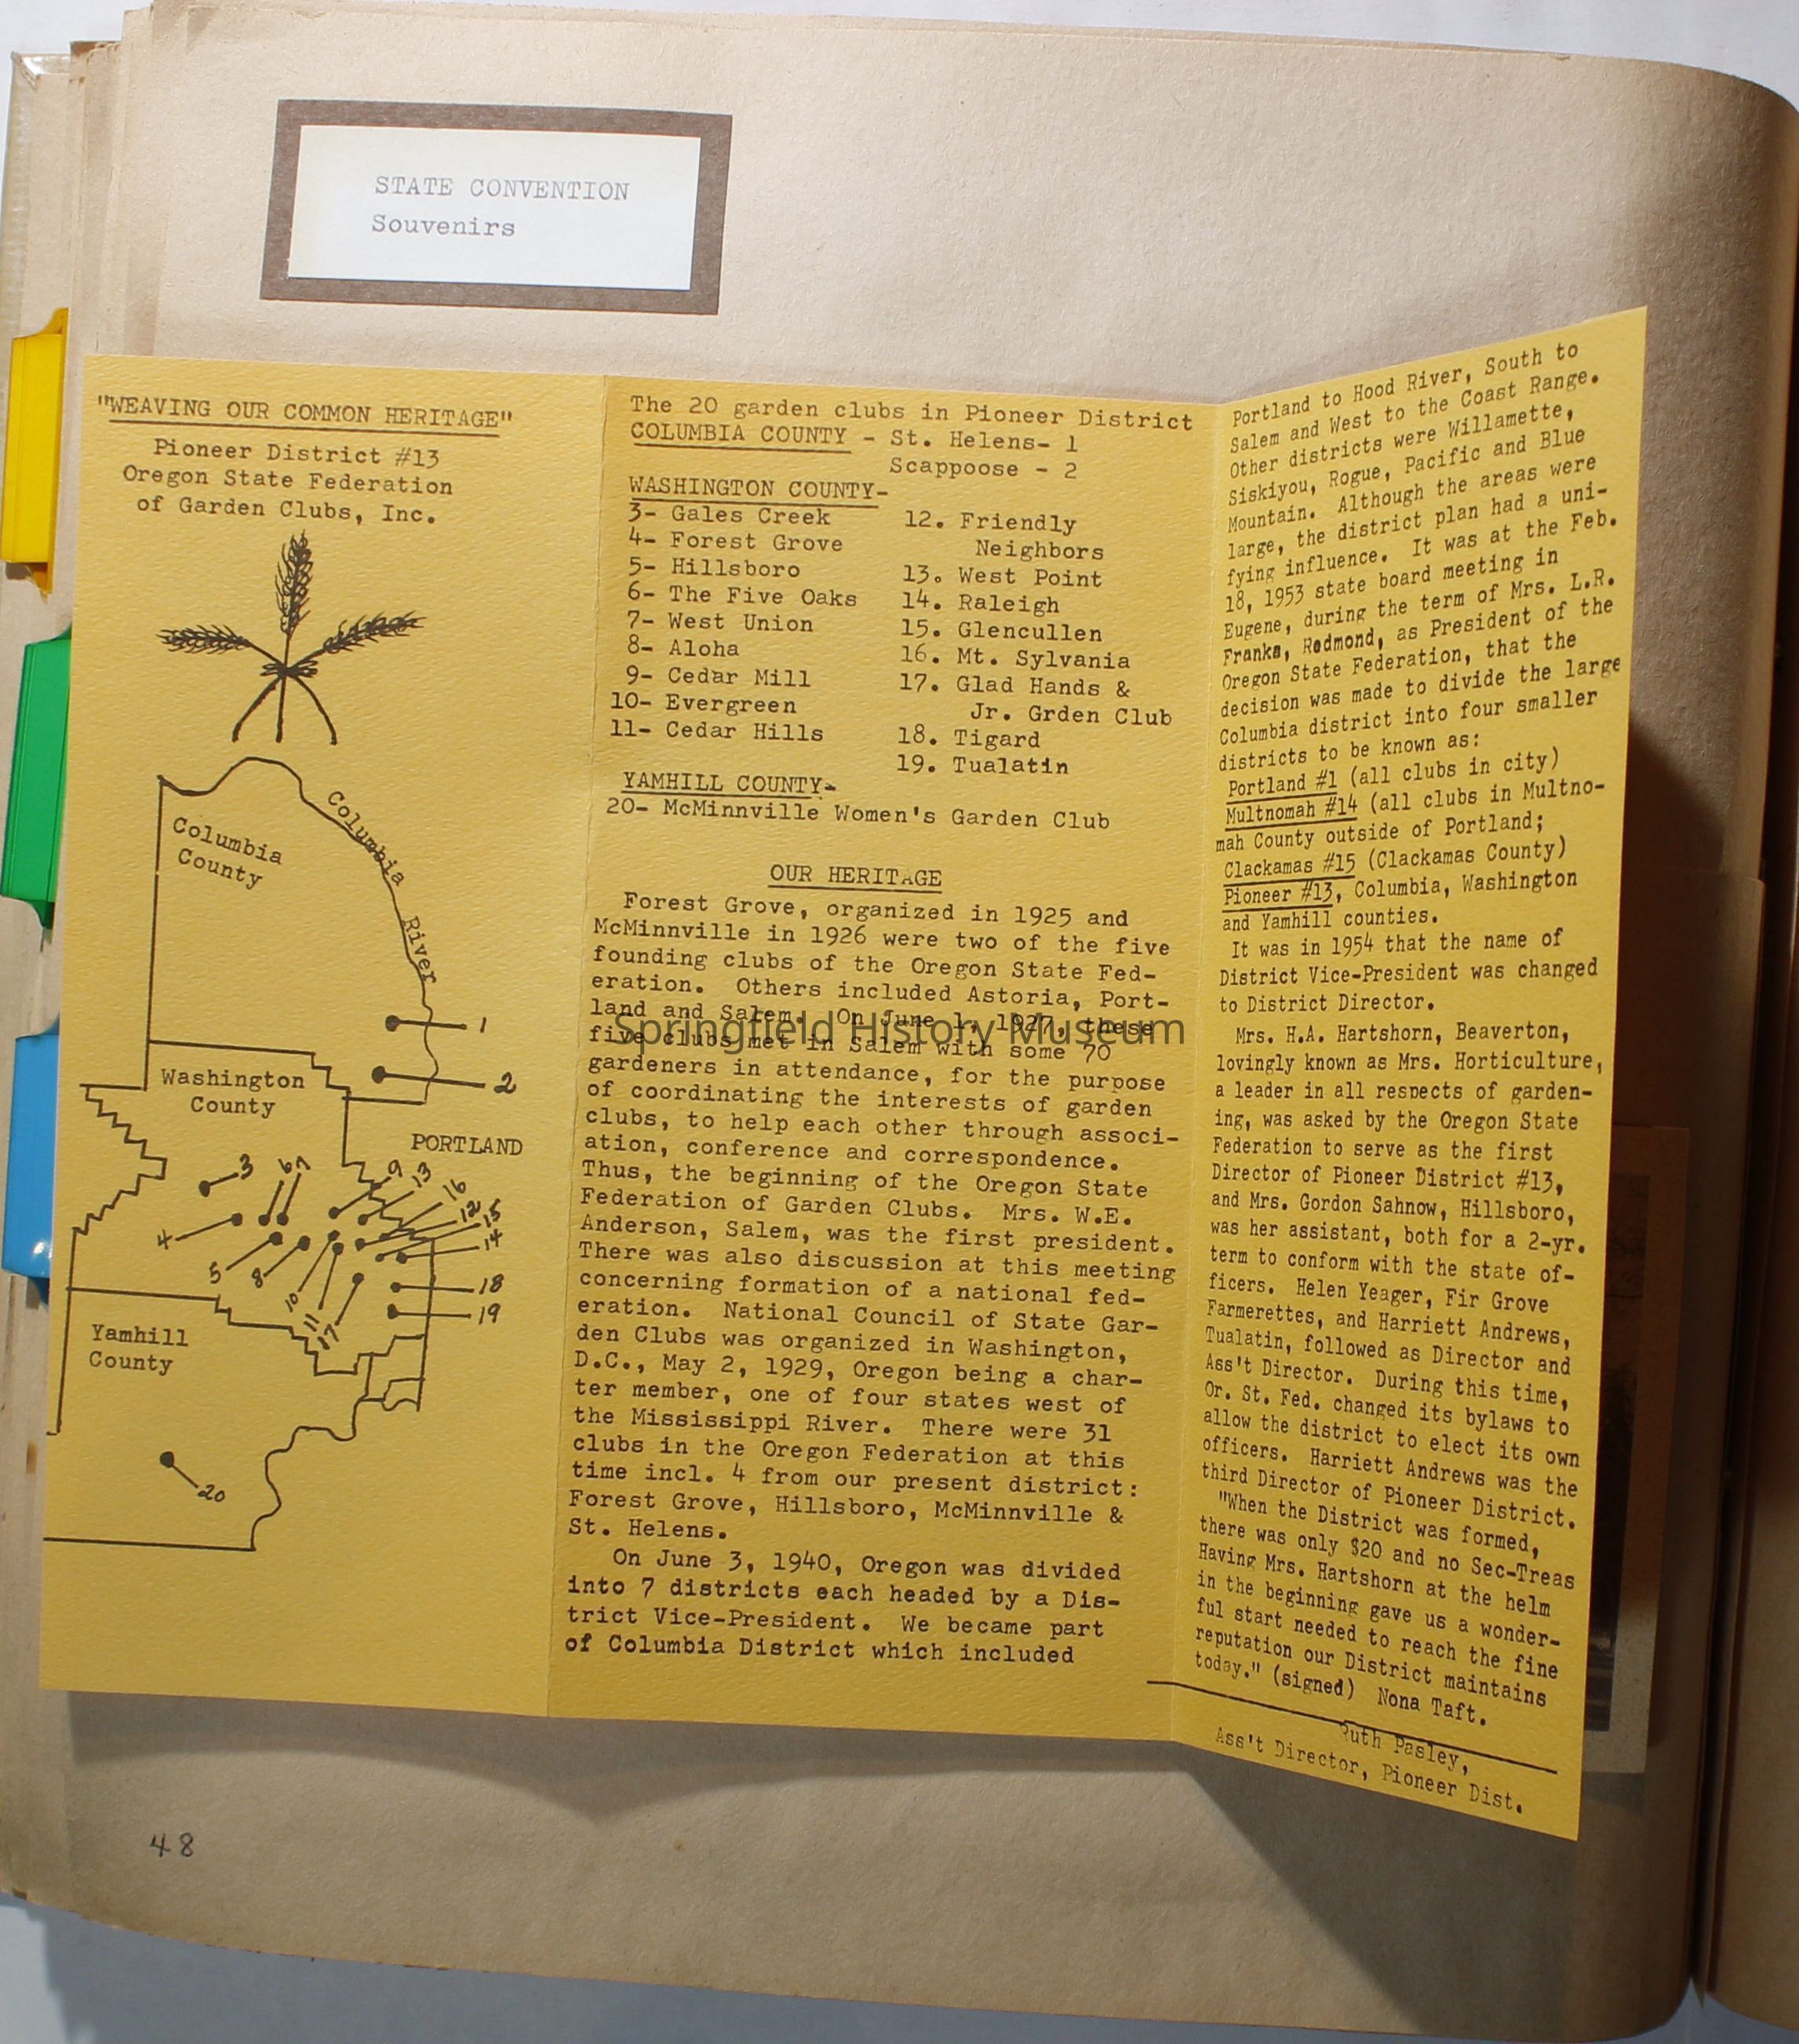 STATE CONVENTION
Souvenirs
"WEAVING OUR COMMON HERITAGE"
Pioneer District #13
Oregon State Federation
of Garden Clubs, Inc.
Columbia
County
Columbia
River
1
2
Washington
County
PORTLAND
3
6
7
9
13
16
12
15
14
4
5
8
10
11
17
18
19
Yamhill
County
20
The 20 garden clubs in Pioneer District
COLUMBIA COUNTY - St. Helens- 1
Scappoose - 2
WASHINGTON COUNTY-
3- Gales Creek
4- Forest Grove
5- Hillsboro
6- The Five Oaks
7- West Union
8- Aloha
9- Cedar Mill
10- Evergreen
11- Cedar Hills
12. Friendly
Neighbors
13. West Point
14. Raleigh
15. Glencullen
16. Mt. Sylvania
17. Glad Hands &
Jr. Grden Club
18. Tigard
19. Tualatin
YAMHILL COUNTY-
20- McMinnville Women's Garden Club
OUR HERITAGE
Forest Grove, organized in 1925 and
McMinnville in 1926 were two of the five
founding clubs of the Oregon State Fed-
eration. Others included Astoria, Port-
land and Salem. On June 1, 1927, these
five clubs met in Salem with some 70
gardeners in attendance, for the purpose
of coordinating the interests of garden
clubs, to help each other through associ-
ation, conference and correspondence.
Thus, the beginning of the Oregon State
Federation of Garden Clubs. Mrs. W.E.
Anderson, Salem, was the first president.
There was also discussion at this meeting
concerning formation of a national fed-
eration. National Council of State Gar-
den Clubs was organized in Washington,
D.C., May 2, 1929, Oregon being a char-
ter member, one of four states west of
the Mississippi River. There were 31
clubs in the Oregon Federation at this
time incl. 4 from our present district:
Forest Grove, Hillsboro, McMinnville &
St. Helens.
On June 3, 1940, Oregon was divided
into 7 districts each headed by a Dis-
trict Vice-President. We became part
of Columbia District which included
Portland to Hood River, South to
Salem and West to the Coast Range.
Other districts were Willamette,
Siskiyou, Rogue, Pacific and Blue
Mountain. Although the areas were
large, the district plan had a uni-
fying influence. It was at the Feb.
18, 1953 state board meeting in
Eugene, during the term of Mrs. L.R.
Franks, Redmond, as President of the
Oregon State Federation, that the
decision was made to divide the large
Columbia district into four smaller
districts to be known as:
Portland #1 (all clubs in city)
Multnomah #14 (all clubs in Multno-
mah County outside of Portland;
Clackamas #15 (Clackamas County)
Pioneer #13, Columbia, Washington
and Yamhill counties.
It was in 1954 that the name of
District Vice-President was changed
to District Director.
Mrs. H.A. Hartshorn, Beaverton,
lovingly known as Mrs. Horticulture,
a leader in all respects of garden-
ing, was asked by the Oregon State
Federation to serve as the first
Director of Pioneer District #13,
and Mrs. Gordon Sahnow, Hillsboro,
was her assistant, both for a 2-yr.
term to conform with the state of-
ficers. Helen Yeager, Fir Grove
Farmerettes, and Harriett Andrews,
Tualatin, followed as Director and
Ass't Director. During this time,
Or. St. Fed. changed its bylaws to
allow the district to elect its own
officers. Harriett Andrews was the
third Director of Pioneer District.
"When the District was formed,
there was only $20 and no Sec-Treas
Having Mrs. Hartshorn at the helm
in the beginning gave us a wonder-
ful start needed to reach the fine
reputation our District maintains
today." (signed) Nona Taft.
Ruth Pasley,
Ass't Director, Pioneer Dist.
Springfield History Museum
48